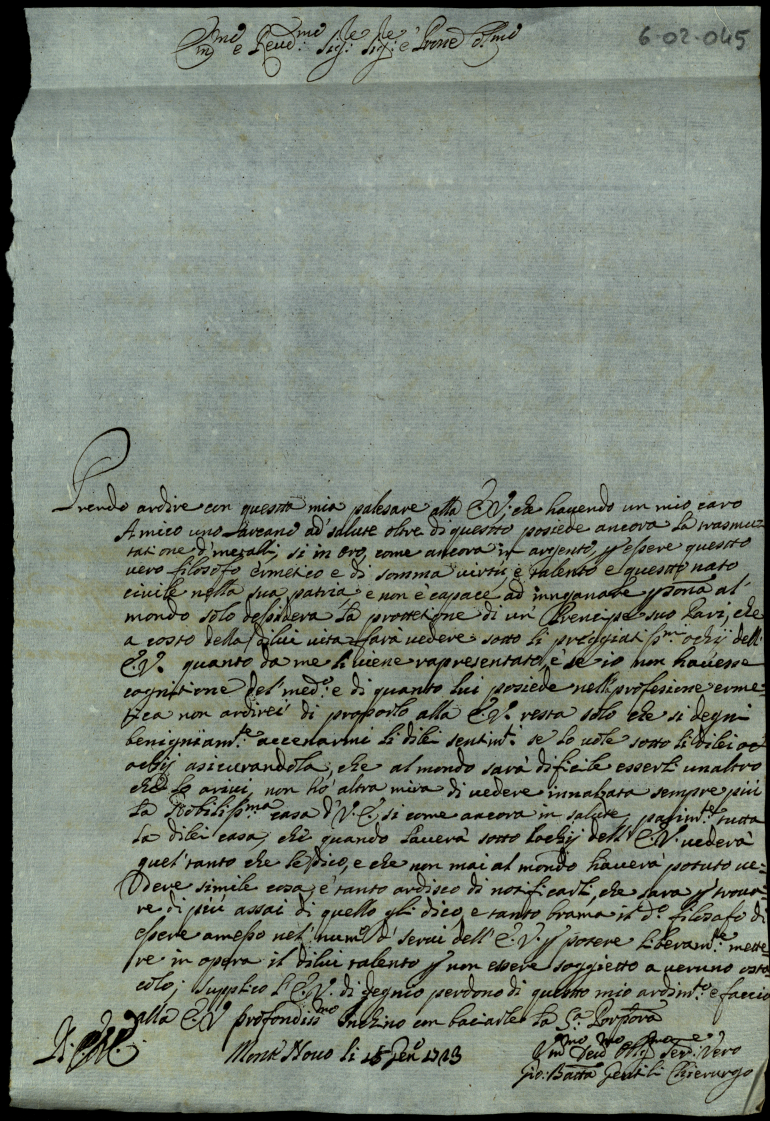 Em.mo e Reud.mo Sig.re Sig.re e Prone Col.mo
6-02-045
Prendo ardire con questta mia palesare alla E.V. che havendo un mio caro
Amico uno Larcano ad' salute oltre di questto posiede ancora La trasmu=
tatione d'metalli, si in oro, come ancora in argento, p essere questto
vero filosofo Ermetico e di somma virtù e talento e questto nato
civile nella sua patria e non è capace ad inngannare psona al'
mondo solo desidera La prottetione di un' Prencipe suo Pari, che
a costo della dilui vita farà vedere sotto li preggiatiss.mi ochij dell'
E.V. quanto da me li viene rapresentato, e se io non havesse
cognittione del' med.o e di quanto lui posiede nella profesione erme=
tica non ardirei di proporlo alla E.V. resta solo che si degni
benigniam.te accenarmi li dilei sentim.ti se lo uole sotto li dilei oc
ochij asicurandola, che al mondo sarà dificile esserli un altro
che lo arivi, non hò altra mira di vedere innalzata sempre più
La Nobiliss.ma casa d' V.E. si come ancora in salute parim.te tutta
La dilei casa, che quando Lauerà sotto Lochij dell' E.V. vederà
quel' tanto che le dico, e che non mai al mondo hauerà potuto ue=
dere simile cosa, e tanto ardisco di notificarli, che sarà p' troua=
re di più assai di quello gli dico, e tanto brama il d.o filosofo di
essere amesso nel' num.o d' serui dell' E.V. p potere liberam.te mette=
re in opera il dilui talento p non essere soggietto a veruno osta=
colo; supplico L'E.V. di degnio perdono di questto mio ardim.to e faccio
alla E.V. profondiss.mo Inchino con baciarle La S.a Porpora
Monte Nouo li 15 Gen.o 1723
Gio: Batta Gentili Chierurgo